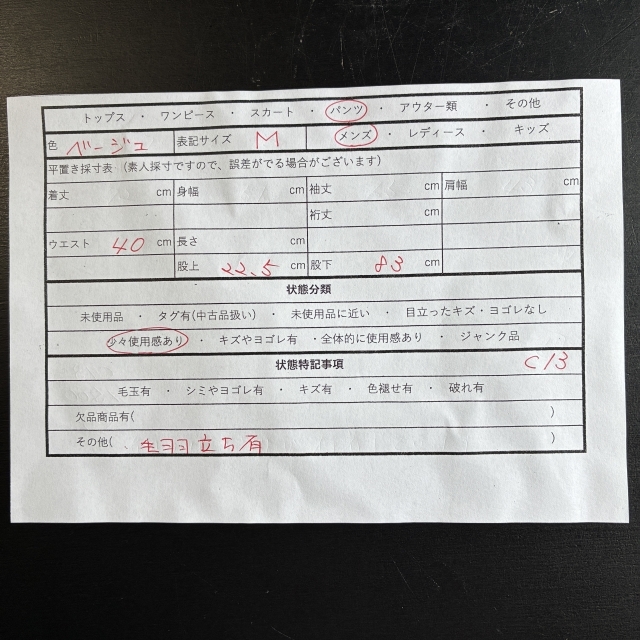 トップス ・ ワンピース ・ スカート ・ パンツ ・ アウター類 ・ その他
色 ベージュ 表記サイズ M メンズ ・ レディース ・ キッズ
平置き採寸表 (素人採寸ですので、誤差がでる場合がございます)
着丈 cm 身幅 cm 袖丈 cm 肩幅 cm
裄丈 cm
ウエスト 40 cm 長さ cm
股上 22.5 cm 股下 83 cm
状態分類
未使用品 ・ タグ有(中古品扱い) ・ 未使用品に近い ・ 目立ったキズ・ヨゴレなし
・ 少々使用感あり ・ キズやヨゴレ有 ・全体的に使用感あり ・ ジャンク品
状態特記事項 C13
毛玉有 ・ シミやヨゴレ有 ・ キズ有 ・ 色褪せ有 ・ 破れ有
欠品商品有( )
その他( . 毛羽立ち有 )